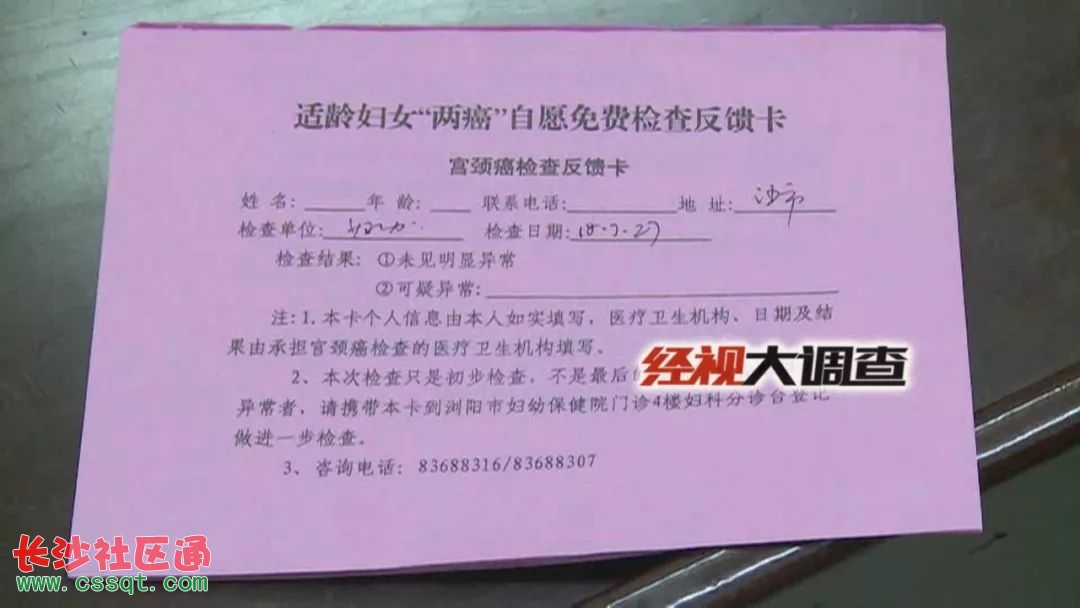 适龄妇女“两癌”自愿免费检查反馈卡
宫颈癌检查反馈卡
姓 名: 年 龄: 联系电话: 地 址: 沙市
检查单位: 检查日期: 18.7.27
检查结果: ①未见明显异常
②可疑异常:
注:1.本卡个人信息由本人如实填写，医疗卫生机构、日期及结
果由承担宫颈癌检查的医疗卫生机构填写。
2、本次检查只是初步检查，不是最后
异常者，请携带本卡到浏阳市妇幼保健院门诊4楼妇科分诊台登记
做进一步检查。
3、咨询电话: 83688316/83688307
经视大调查
长沙社区通
www.cssqt.com